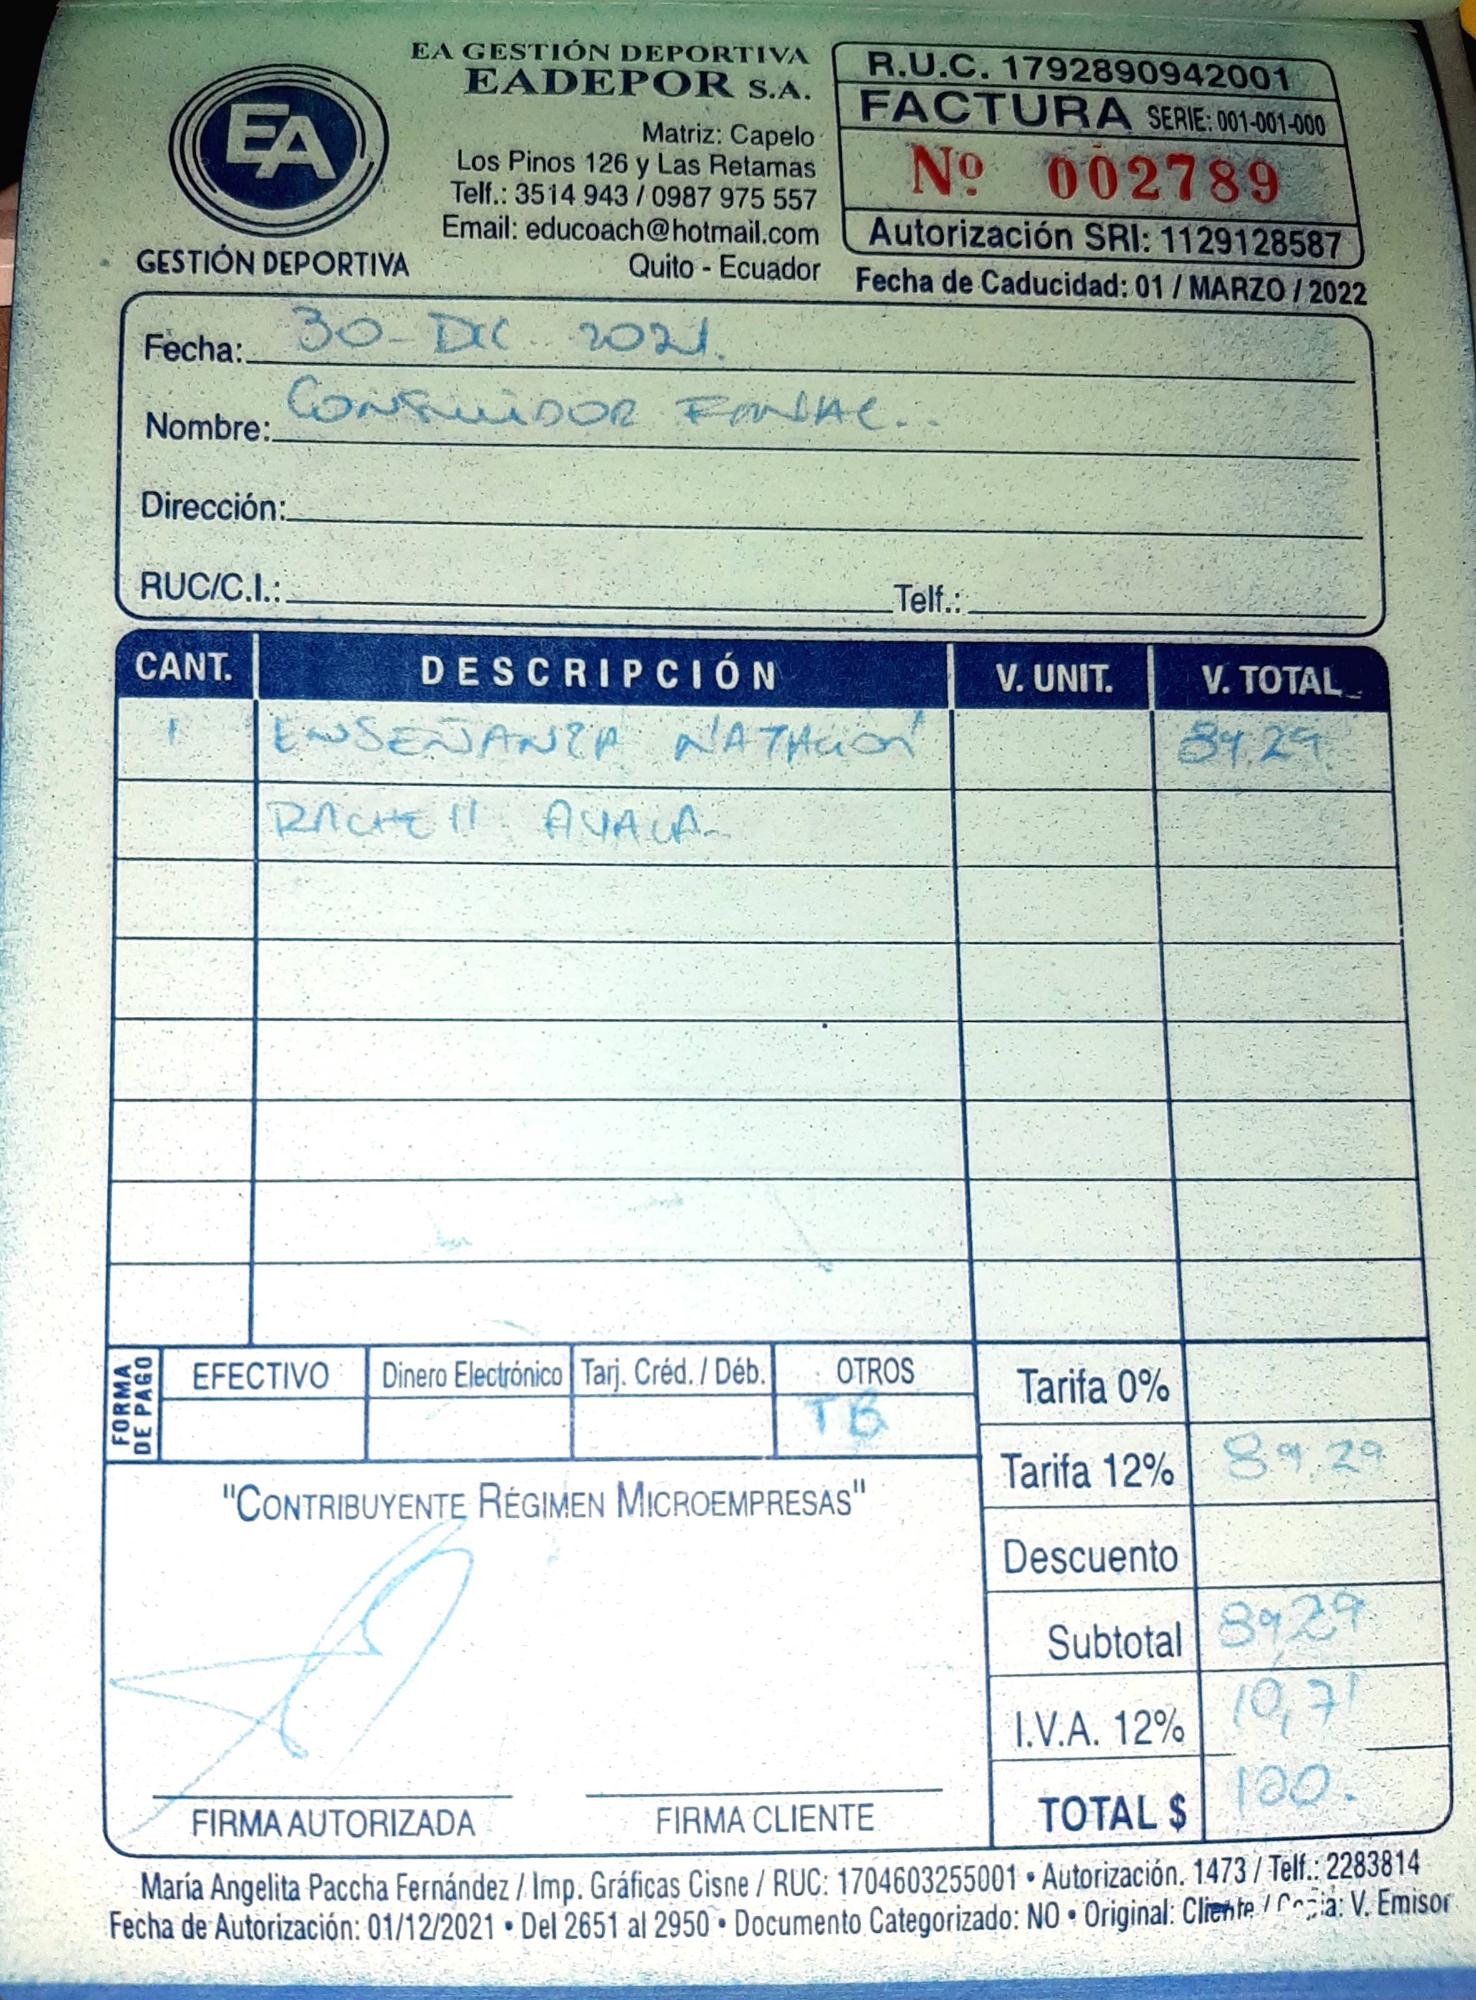 EA GESTIÓN DEPORTIVA
EADEPOR S.A.
EA
GESTIÓN DEPORTIVA
Matriz: Capelo
Los Pinos 126 y Las Retamas
Telf.: 3514 943 / 0987 975 557
Email: educoach@hotmail.com
Quito - Ecuador
R.U.C. 1792890942001
FACTURA SERIE: 001-001-000
Nº 002789
Autorización SRI: 1129128587
Fecha de Caducidad: 01 / MARZO / 2022
Fecha: 30-DIC. 2021.
Nombre: CONSUMIDOR FINAL..
Dirección:
RUC/C.I.: Telf.:
CANT. DESCRIPCIÓN V. UNIT. V. TOTAL
1 ENSEÑANZA NATACIÓN 89.29
RACHELL AYALA
FORMA DE PAGO
EFECTIVO Dinero Electrónico Tarj. Créd. / Déb. OTROS
TB
Tarifa 0%
Tarifa 12% 89.29
Descuento
Subtotal 89,29
I.V.A. 12% 10,71
TOTAL $ 100.
"CONTRIBUYENTE RÉGIMEN MICROEMPRESAS"
FIRMA AUTORIZADA FIRMA CLIENTE
María Angelita Paccha Fernández / Imp. Gráficas Cisne / RUC: 1704603255001 • Autorización. 1473 / Telf.: 2283814
Fecha de Autorización: 01/12/2021 • Del 2651 al 2950 • Documento Categorizado: NO • Original: Cliente / Copia: V. Emisor